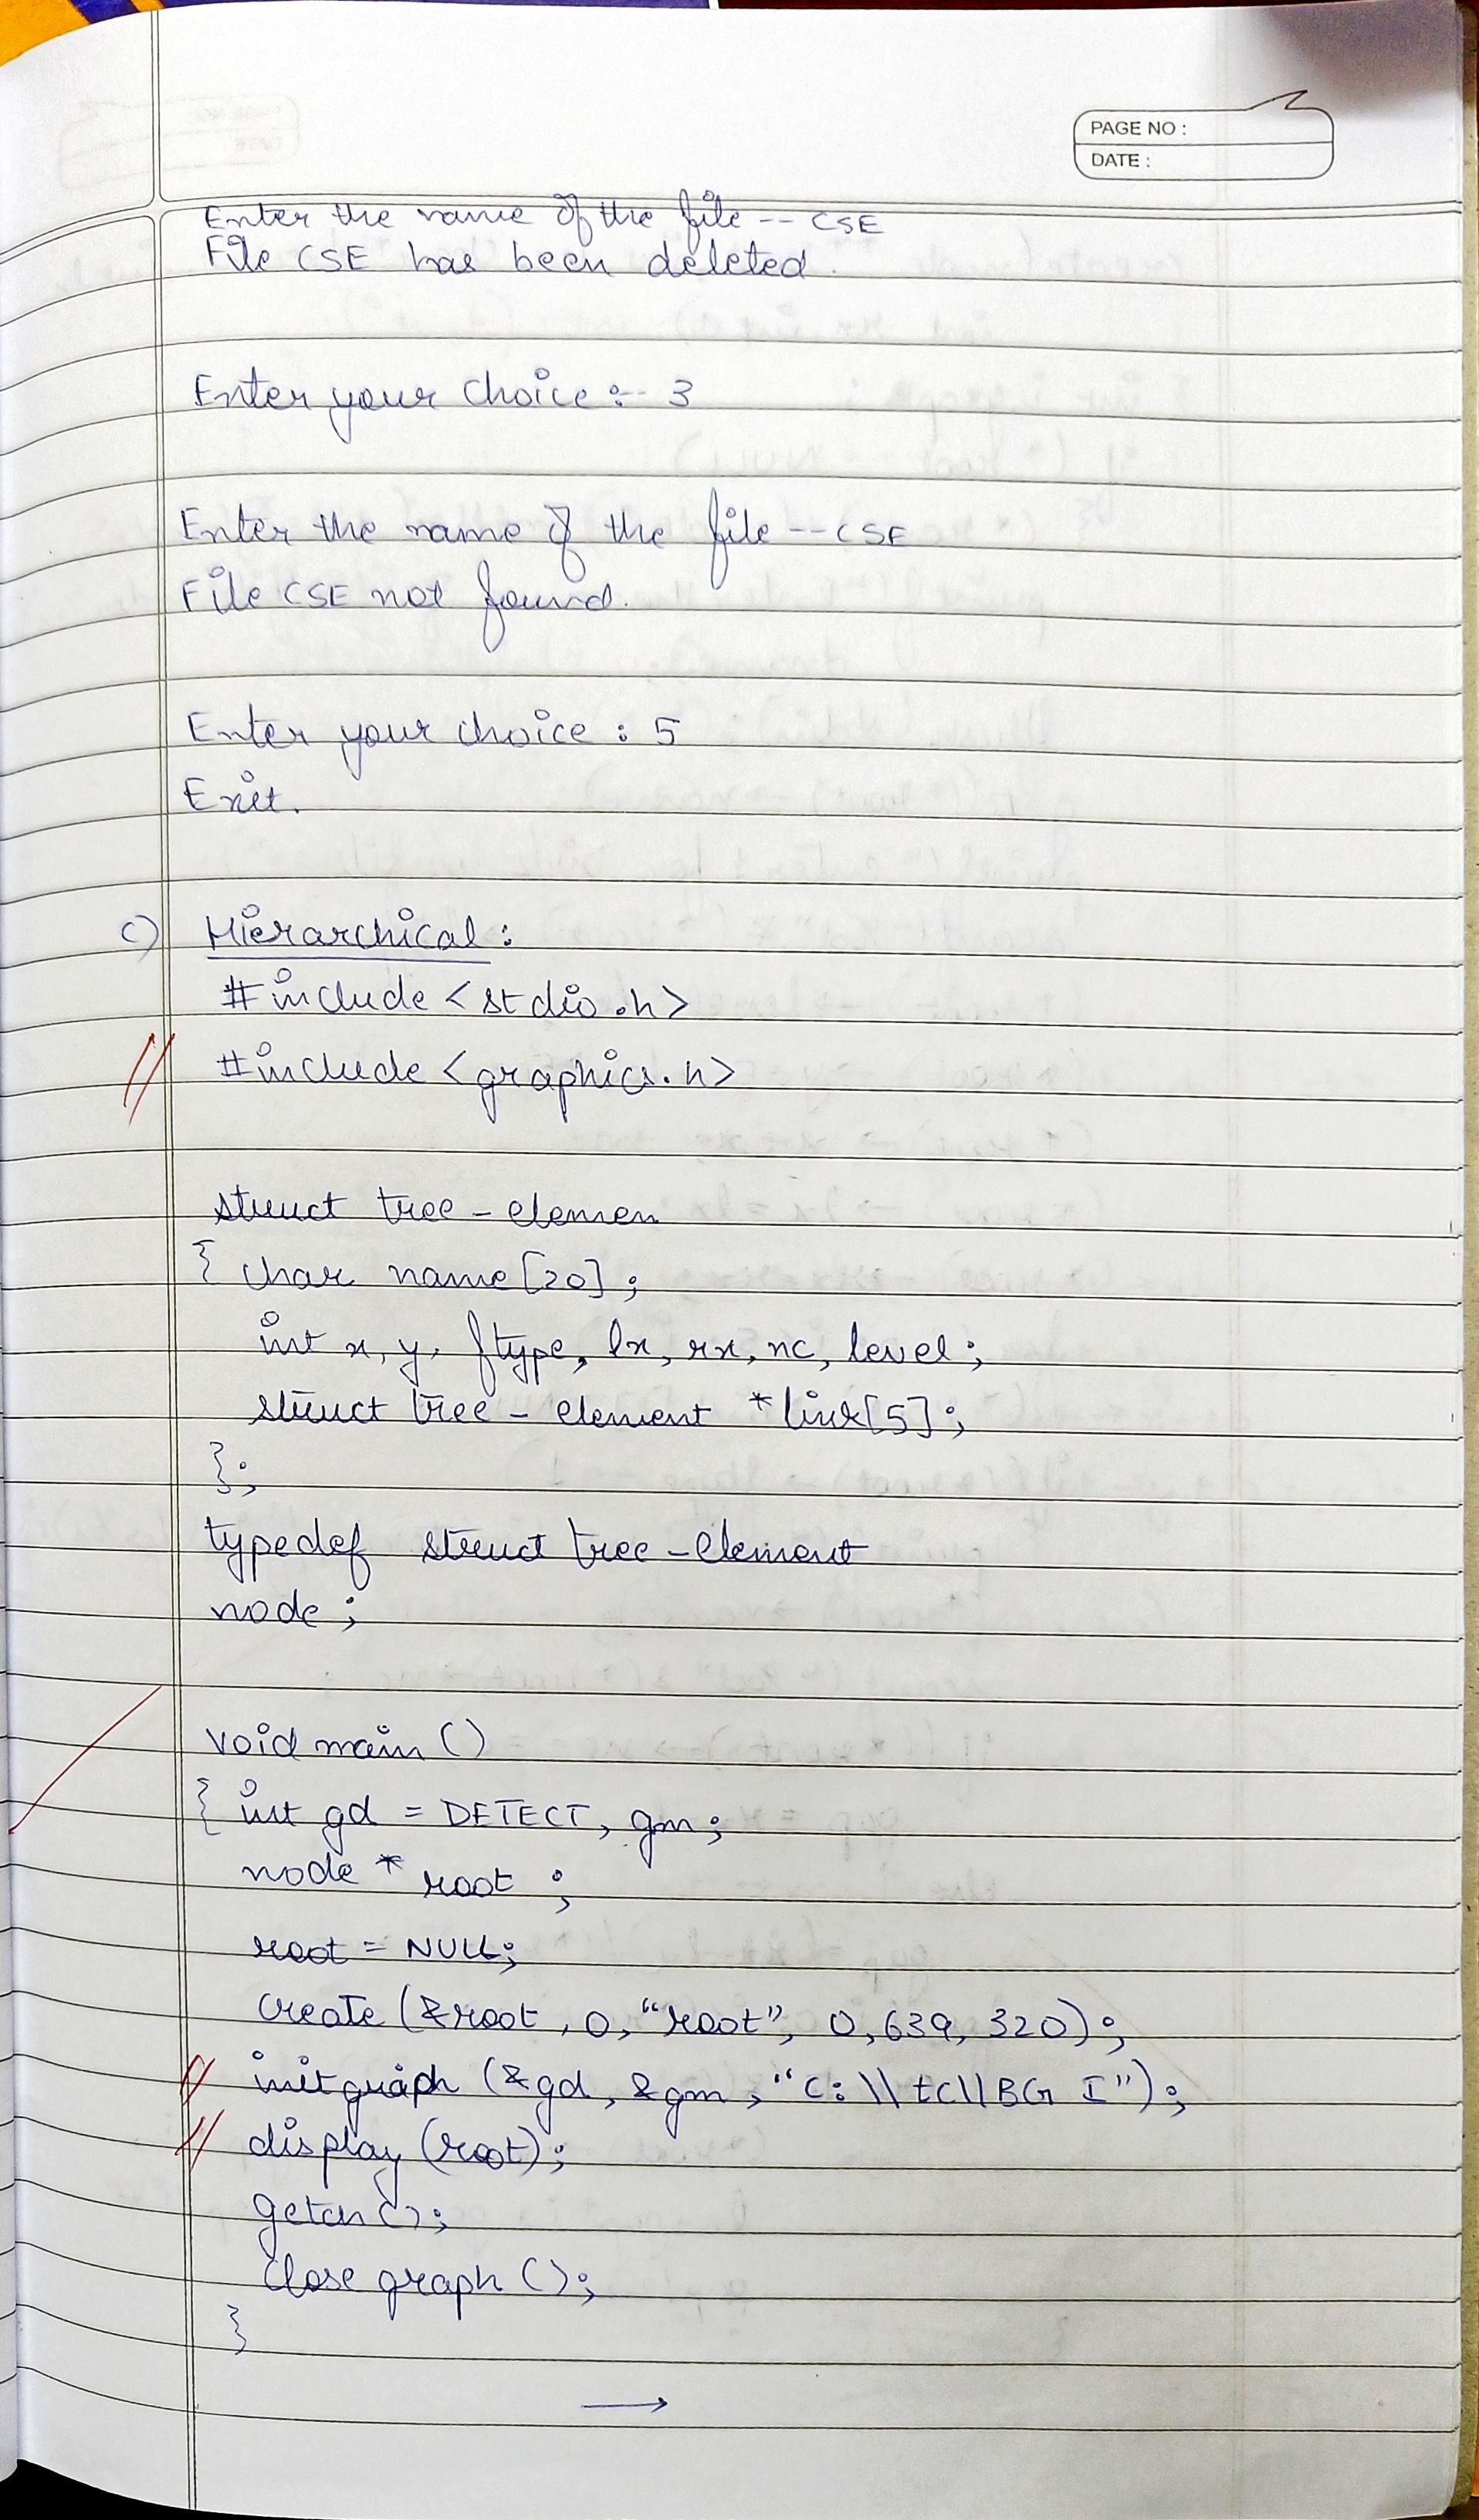 PAGE NO :
DATE :
Enter the name of the file -- CSE
File CSE has been deleted.
Enter your choice :- 3
Enter the name of the file -- CSE
File CSE not found.
Enter your choice : 5
Exit.
c) Hierarchical :
#include <stdio.h>
// #include <graphics.h>
struct tree - elemen
{ char name [20] ;
int x, y, ftype, lx, rx, nc, level ;
struct tree - element *link[5] ;
};
typedef struct tree - element
node ;
void main ()
{ int gd = DETECT, gm ;
node * root ;
root = NULL ;
create (&root , 0, "root", 0, 639, 320) ;
// initgraph (&gd, &gm , "c: \\ tc\\BG I") ;
// display (root) ;
getch () ;
close graph () ;
}
→